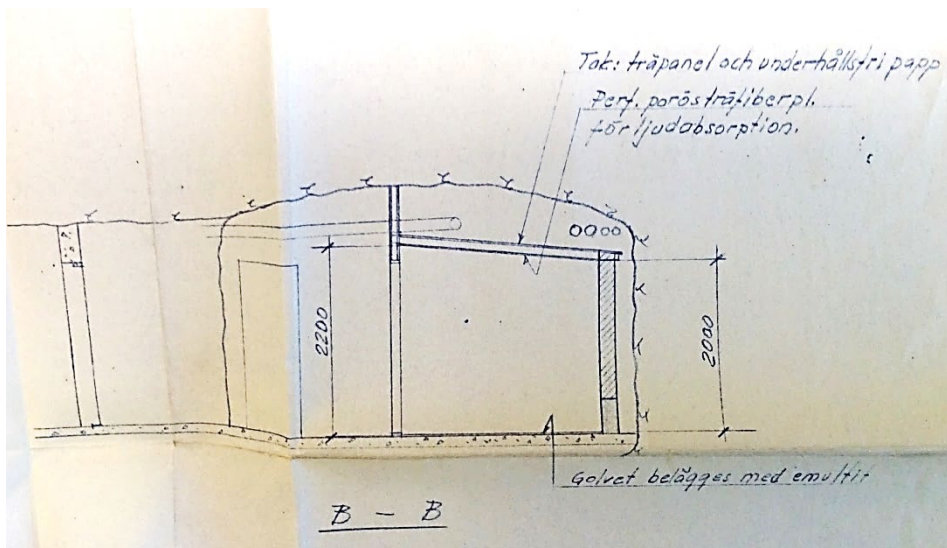 Tak: träpanel och underhållsfri papp
Perf. porös träfiberpl.
för ljudabsorption.
2200
2000
Golvet belägges med emultit
B - B